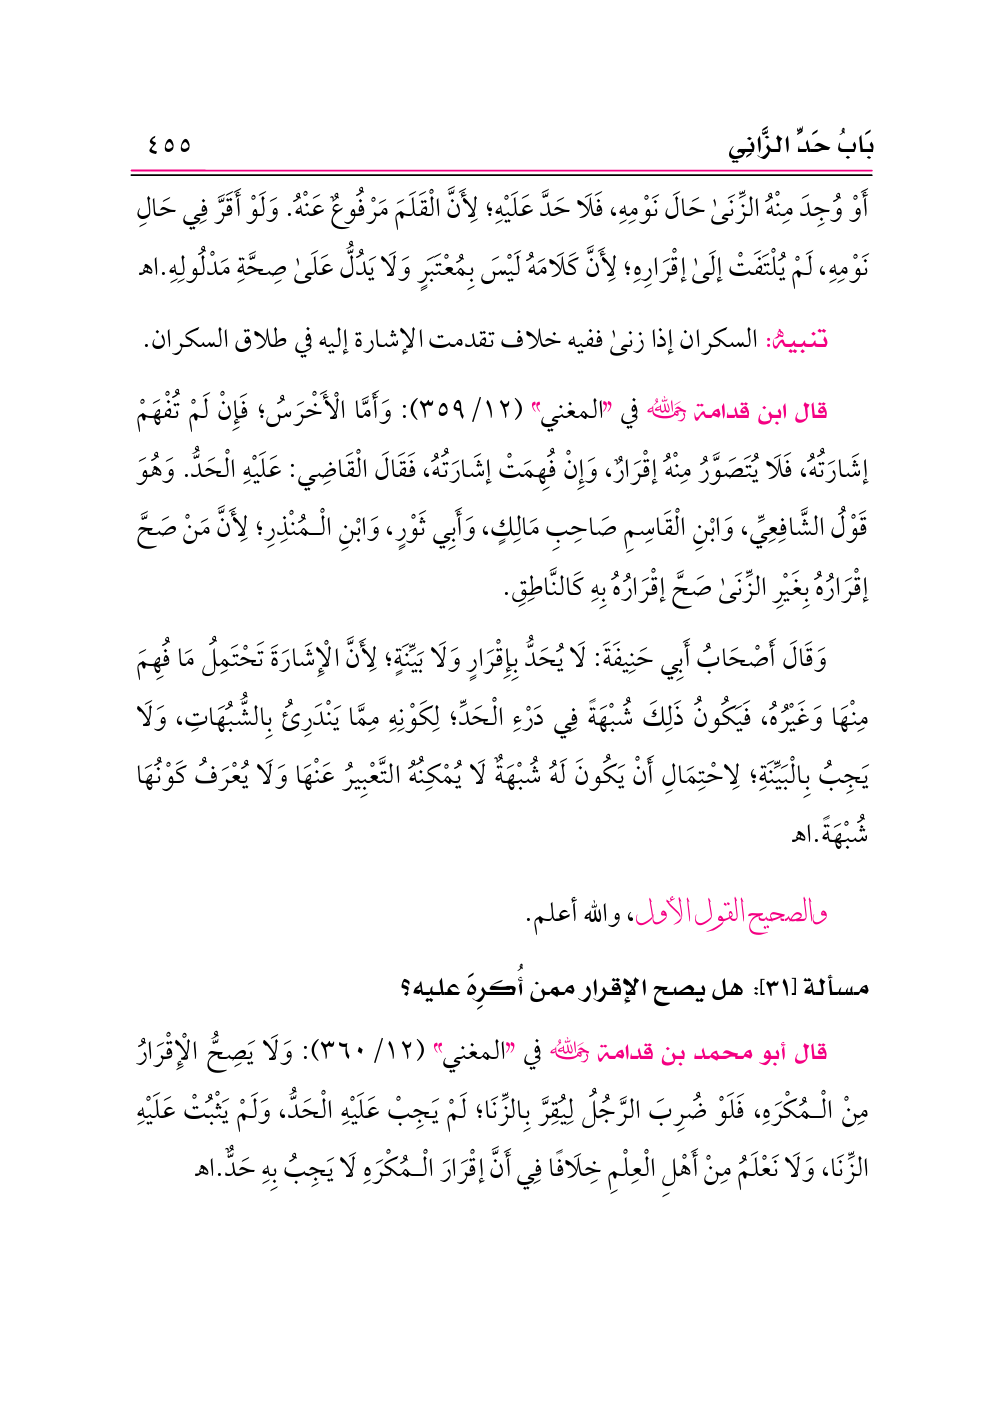 بَابُ حَدِّ الزَّانِي ٤٥٥
أَوْ وُجِدَ مِنْهُ الزِّنَىٰ حَالَ نَوْمِهِ، فَلَا حَدَّ عَلَيْهِ؛ لِأَنَّ الْقَلَمَ مَرْفُوعٌ عَنْهُ. وَلَوْ أَقَرَّ فِي حَالِ
نَوْمِهِ، لَمْ يُلْتَفَتْ إلَىٰ إقْرَارِهِ؛ لِأَنَّ كَلَامَهُ لَيْسَ بِمُعْتَبَرٍ وَلَا يَدُلُّ عَلَىٰ صِحَّةِ مَدْلُولِهِ.اهـ
تنبيهٌ: السكران إذا زنىٰ ففيه خلاف تقدمت الإشارة إليه في طلاق السكران.
قال ابن قدامة رحمه الله في "المغني" (١٢/ ٣٥٩): وَأَمَّا الْأَخْرَسُ؛ فَإِنْ لَمْ تُفْهَمْ
إشَارَتُهُ، فَلَا يُتَصَوَّرُ مِنْهُ إقْرَارٌ، وَإِنْ فُهِمَتْ إشَارَتُهُ، فَقَالَ الْقَاضِي: عَلَيْهِ الْحَدُّ. وَهُوَ
قَوْلُ الشَّافِعِيِّ، وَابْنِ الْقَاسِمِ صَاحِبِ مَالِكٍ، وَأَبِي ثَوْرٍ، وَابْنِ الْـمُنْذِرِ؛ لِأَنَّ مَنْ صَحَّ
إقْرَارُهُ بِغَيْرِ الزِّنَىٰ صَحَّ إقْرَارُهُ بِهِ كَالنَّاطِقِ.
وَقَالَ أَصْحَابُ أَبِي حَنِيفَةَ: لَا يُحَدُّ بِإِقْرَارٍ وَلَا بَيِّنَةٍ؛ لِأَنَّ الْإِشَارَةَ تَحْتَمِلُ مَا فُهِمَ
مِنْهَا وَغَيْرُهُ، فَيَكُونُ ذَلِكَ شُبْهَةً فِي دَرْءِ الْحَدِّ؛ لِكَوْنِهِ مِمَّا يَنْدَرِئُ بِالشُّبُهَاتِ، وَلَا
يَجِبُ بِالْبَيِّنَةِ؛ لِاحْتِمَالِ أَنْ يَكُونَ لَهُ شُبْهَةٌ لَا يُمْكِنُهُ التَّعْبِيرُ عَنْهَا وَلَا يُعْرَفُ كَوْنُهَا
شُبْهَةً.اهـ
والصحيح القول الأول، والله أعلم.
مسألة [٣١]: هل يصح الإقرار ممن أُكرِهَ عليه؟
قال أبو محمد بن قدامة رحمه الله في "المغني" (١٢/ ٣٦٠): وَلَا يَصِحُّ الْإِقْرَارُ
مِنْ الْـمُكْرَهِ، فَلَوْ ضُرِبَ الرَّجُلُ لِيُقِرَّ بِالزِّنَا؛ لَمْ يَجِبْ عَلَيْهِ الْحَدُّ، وَلَمْ يَثْبُتْ عَلَيْهِ
الزِّنَا، وَلَا نَعْلَمُ مِنْ أَهْلِ الْعِلْمِ خِلَافًا فِي أَنَّ إقْرَارَ الْـمُكْرَهِ لَا يَجِبُ بِهِ حَدٌّ.اهـ